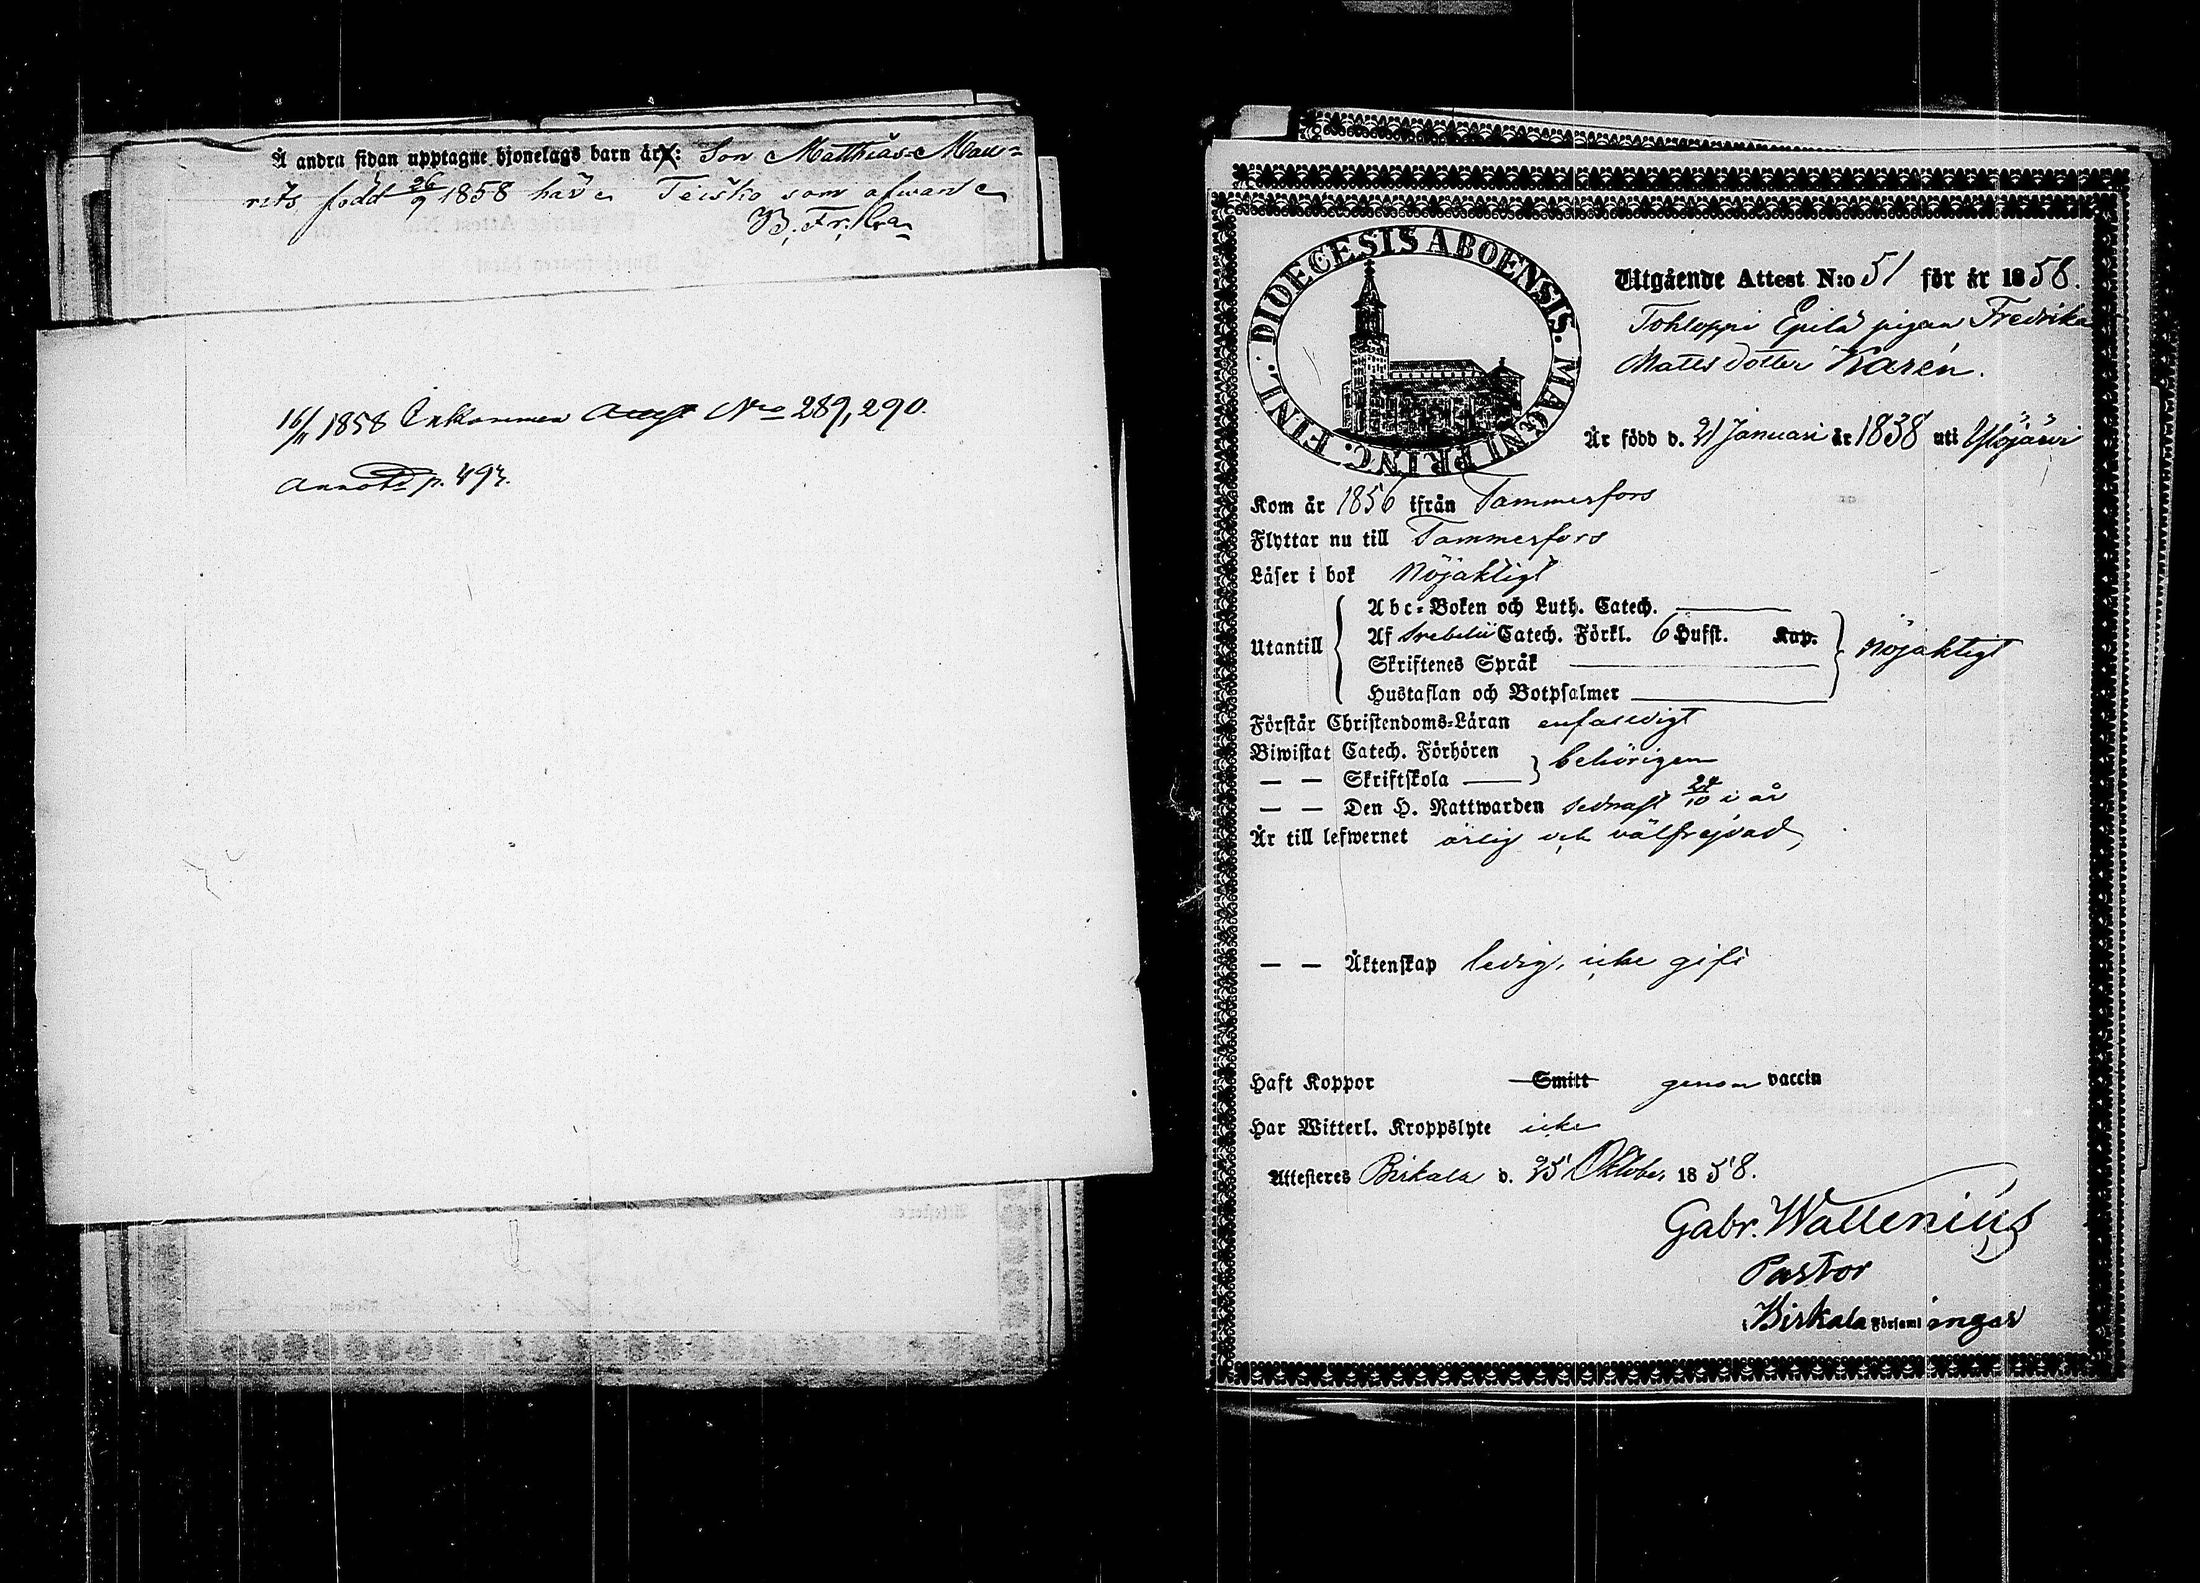 Å andra sidan upptagne hjonelags barn är: Son Matthias Mau-
rits, född 26/9 1858 här i Teisko som ofwan
B. Fr.
16/11 1858 Inkommen N:o 289, 290.
Annot. p. 497.
DIOECESIS ABOENSIS. MAGNI PRINC. FINL.
Utgående Attest N:o 51 för år 1858.
Tohloppi Epilä pigan Fredrika
Matts dotter Karén.
Är född d. 21 Januari år 1838 uti Ylöjärvi
Kom år 1856 ifrån Tammerfors
Flyttar nu till Tammerfors
Läser i bok Nöjaktigt
Utantill
Abc-Boken och Luth. Catech.
Af Svebelii Catech. Förkl. 6 Hufst. Kap.
Skriftenes Språk
Hustaflan och Botpsalmer
Nöjaktigt
Förstår Christendoms-Läran enfaldigt
Biwistat Catech. Förhören
— — Skriftskola
behörigen
— — Den H. Nattwarden sednast 24/10 i år
Är till lefwernet ärlig och välfrejdad,
— — Äktenskap ledig, icke gift
Haft Koppor Smitt genom vaccin
Har Witterl. Kroppslyte icke
Attesteres Birkala d. 25 Oktober 1858.
Gabr. Wallenius
Pastor
i Birkala Församlingar